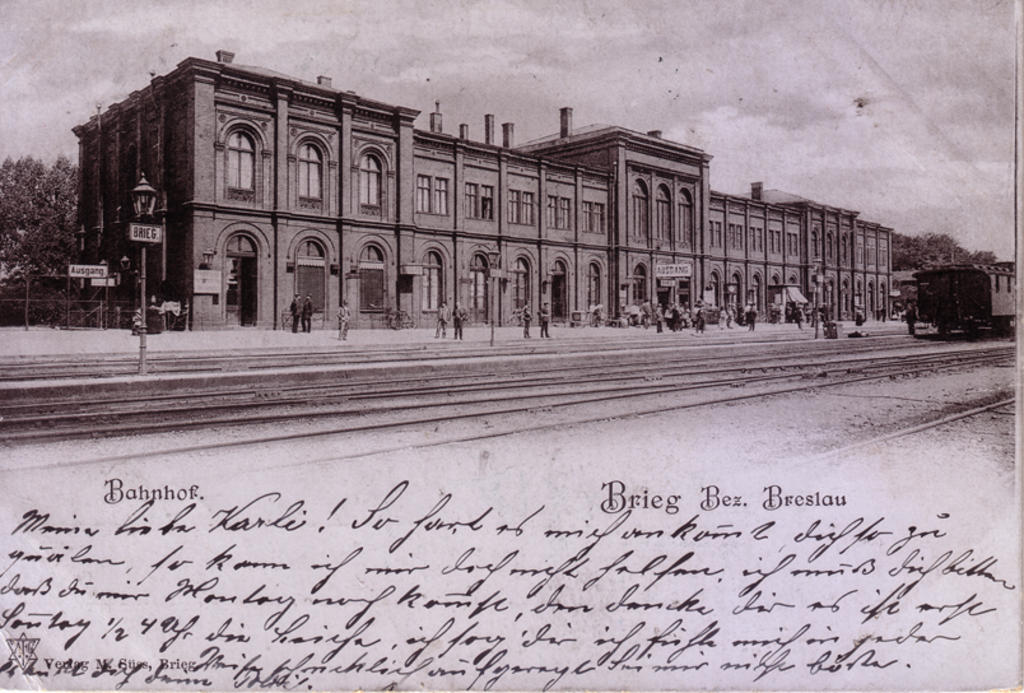 BRIEG.
Ausgang
AUSGANG
Bahnhof.
Brieg Bez. Breslau
Meine liebe Karli! So hart es mich ankommt, dich so zu
quälen, so kann ich mir doch nicht helfen, ich muß dich bitten
daß du mir Montag noch kommst, den dencke dir es ist erst
Sontag 1/2 4 Uhr die Leiche, ich sag dir ich fühle mich in jeder
Weise schrecklich aufgeregt sei mir nicht böse.
Verlag M. Süss, Brieg